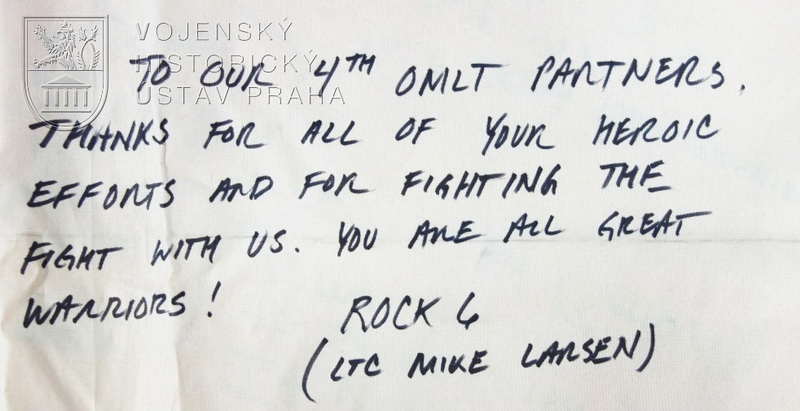 VOJENSKÝ
HISTORICKÝ
ÚSTAV PRAHA
TO OUR 4TH OMLT PARTNERS.
THANKS FOR ALL OF YOUR HEROIC
EFFORTS AND FOR FIGHTING THE
FIGHT WITH US. YOU ARE ALL GREAT
WARRIORS!
ROCK 6
(LTC MIKE LARSEN)